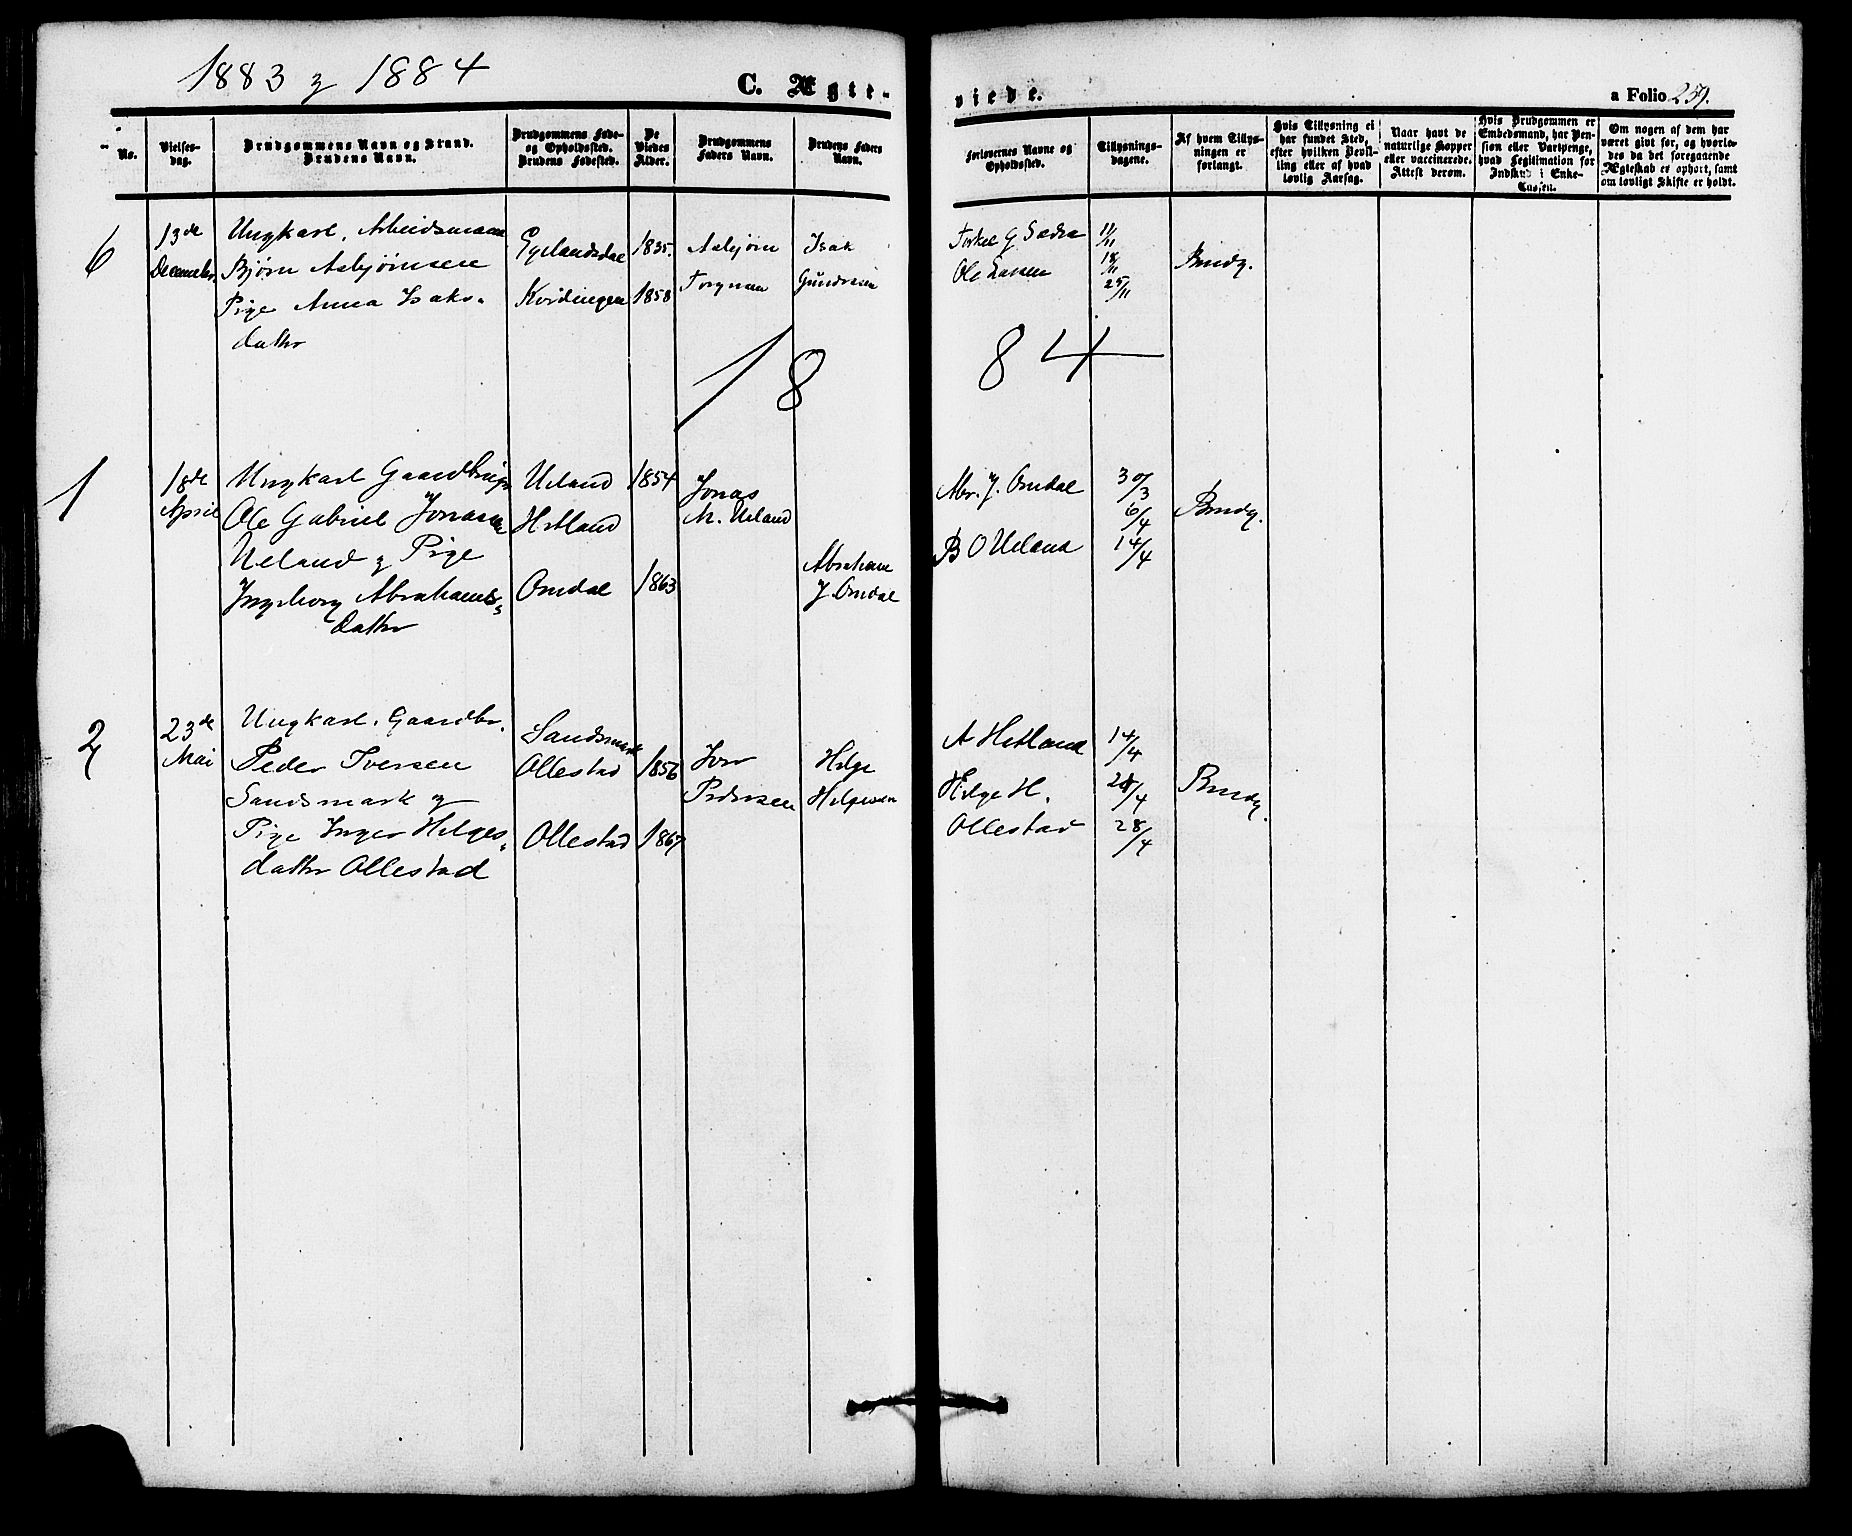 1883 og 1884
C. Ægte-
viede.
a Folio 259.
No.
Vielses-
dag.
Brudgommens Navn og Stand.
Brudens Navn.
Brudgommens Føde-
og Opholdssted.
Brudens Fødested.
De
Viedes
Alder.
Brudgommens
Faders Navn.
Brudens Faders
Navn.
Forlovernes Navne og
Opholdssted.
Tillysnings-
dagene.
Af hvem Tillys-
ningen er
forlangt.
Hvis Tillysning ei
har fundet Sted,
efter hvilken Bevil-
ling eller af hvad
lovlig Aarsag.
Naar havt de
naturlige Kopper
eller vaccinerede.
Attest derom.
Hvis Brudgommen er
Embedsmand, har Pen-
sion eller Vartpenge,
hvad Legitimation for
Indskud i Enke-
Cassen.
Om nogen af dem har
været givt før, og hvorle-
des da det foregaaende
Ægteskab er ophørt, samt
om lovligt Skifte er holdt.
6
13de
December.
Ungkarl. Arbeidsmann
Bjørn Asbjørnsen
Pige Anna Isaks-
datter
Egelandsdal
Kvidingen
1835.
1858
Asbjørn
Isak
Gundersen
Torkel G Sædra
Ole Larsen
11/11
18/11
25/11
Brudg.
1884
1
18de
April
Ungkarl Gaardbruger
Ole Gabriel Jonasen
Ueland og Pige
Ingeborg Abrahams-
datter
Ueland
Hetland
Omdal
1854
1863
Jonas
M. Ueland
Abraham
J. Omdal
Abr. J. Omdal
B O Ueland
30/3
6/4
14/4
Brudg.
2
23de
Mai
Ungkarl. Gaardbr.
Peder Iversen
Sandsmark og
Pige Inger Helges-
datter Ollestad
Sandsmark
Ollestad
Ollestad
1856
1867
Iver
Pedersen
Helge
Helgesen
A Hetland
Helge H.
Ollestad
14/4
28/4
Brudg.